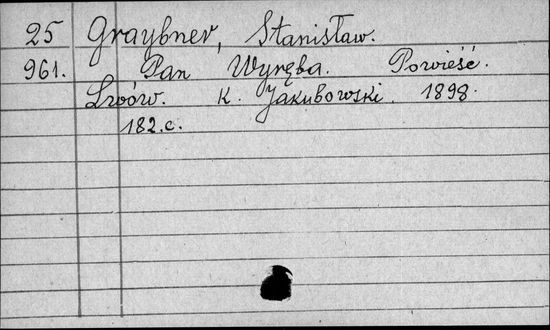 25 Graybner, Stanisław.
961. Pan Wyręba. Powieść.
Lwów. K. Jakubowski. 1898.
182.c.